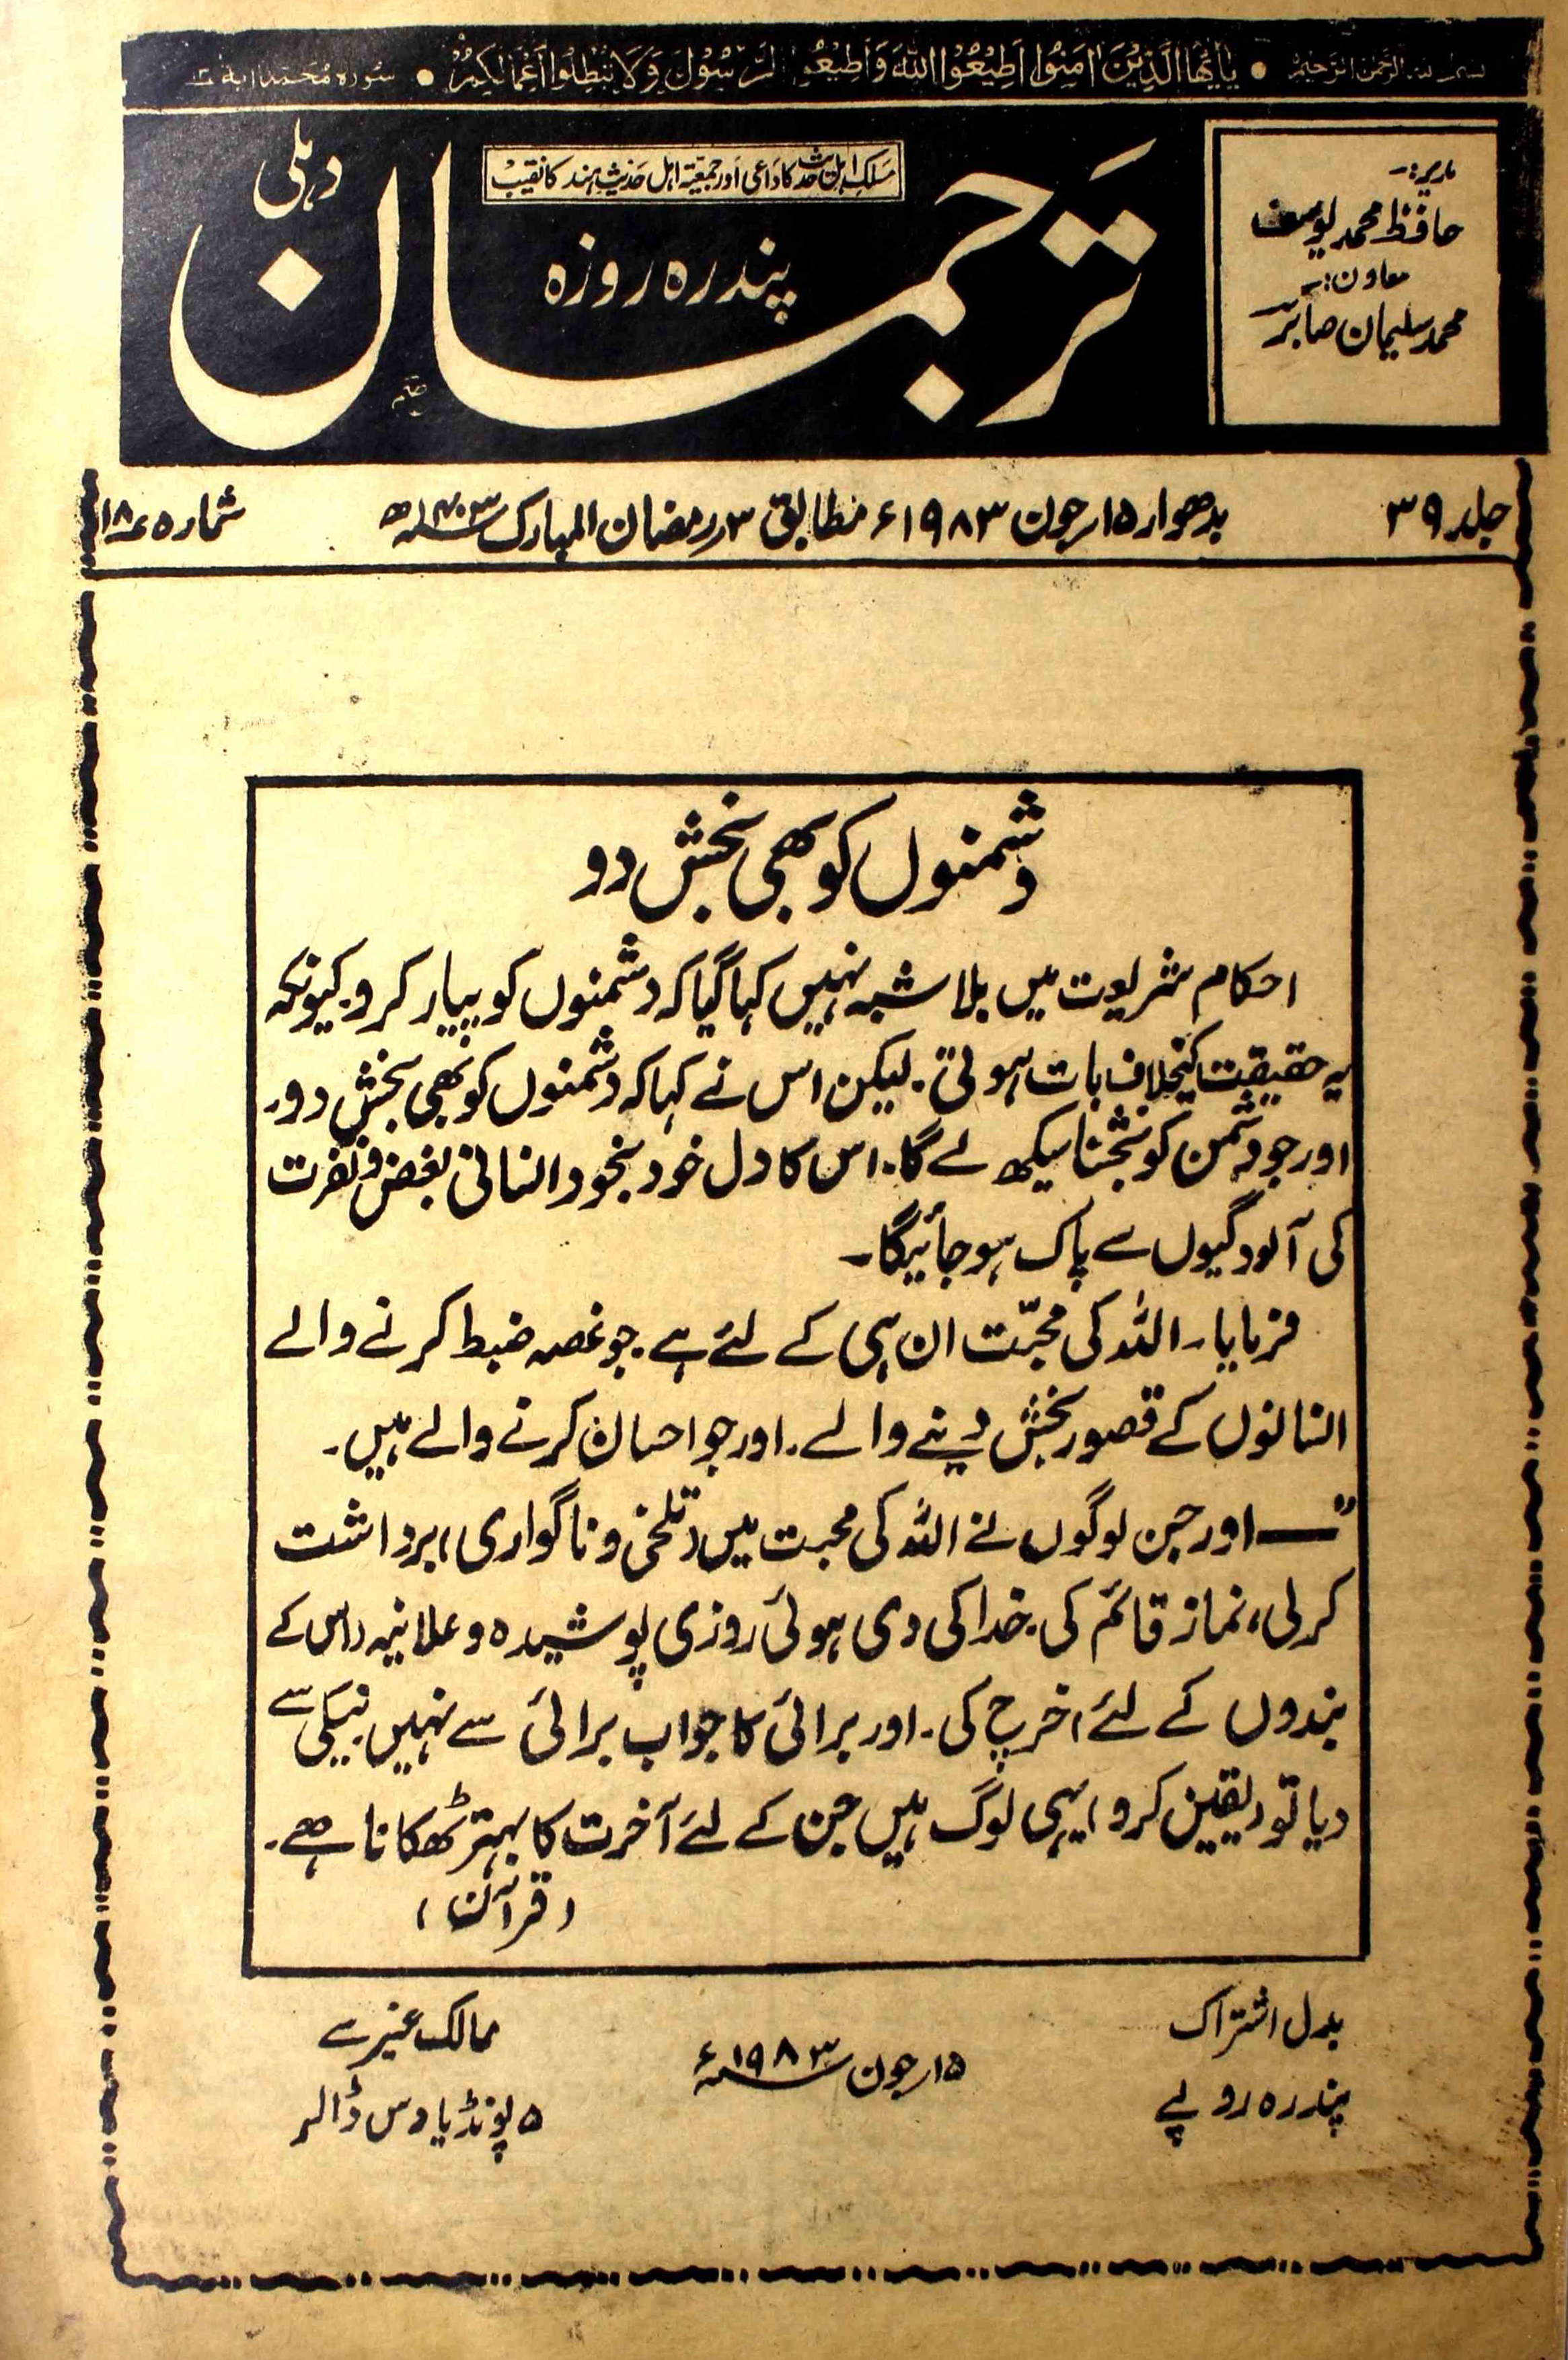 بسم اللہ الرحمن الرحیم • یٰٓاَیُّھَا الَّذِیْنَ اٰمَنُوْا اَطِیْعُوْا اللہَ وَاَطِیْعُوا الرَّسُوْلَ وَلَا تُبْطِلُوْا اَعْمَالَکُمْ • سورہ محمد آیۃ
مدیر:۔
حافظ محمد یوسف
معاون:۔
محمد سلیمان صابر
مسلک اہل حدیث کا داعی اور جمعیۃ اہل حدیث ہند کا نقیب
پندرہ روزہ
ترجمان
دہلی
جلد ۳۹
بدھوار ۱۵؍جون ۱۹۸۳ء مطابق ۳؍رمضان المبارک ۱۴۰۳ھ
شمارہ ۱۸
دشمنوں کو بھی بخش دو
احکام شریعت میں بلا شبہ نہیں کہا گیا کہ دشمنوں کو پیار کرو۔ کیونکہ
یہ حقیقت کیخلاف بات ہوتی۔ لیکن اس نے کہا کہ دشمنوں کو بھی بخش دو۔
اور جو دشمن کو بخشنا سیکھ لے گا۔ اس کا دل خود بخود انسانی بغض و نفرت
کی آلودگیوں سے پاک ہو جائیگا۔
فرمایا۔ اللہ کی محبّت ان ہی کے لئے ہے۔ جو غصہ ضبط کرنے والے
انسانوں کے قصور بخش دینے والے۔ اور جو احسان کرنے والے ہیں۔
"ــــ اور جن لوگوں نے اللہ کی محبت میں (تلخی و ناگواری) برداشت
کرلی، نماز قائم کی۔ خدا کی دی ہوئی روزی پوشیدہ و علانیہ (اس کے
بندوں کے لئے) خرچ کی۔ اور برائی کا جواب برائی سے نہیں نیکی سے
دیا تو (یقین کرو) یہی لوگ ہیں جن کے لئے آخرت کا بہتر ٹھکانا ہے۔
(قرآن)
بدل اشتراک
پندرہ روپے
۱۵؍جون ۱۹۸۳ء
ممالک غیر سے
۵ پونڈ یا دس ڈالر